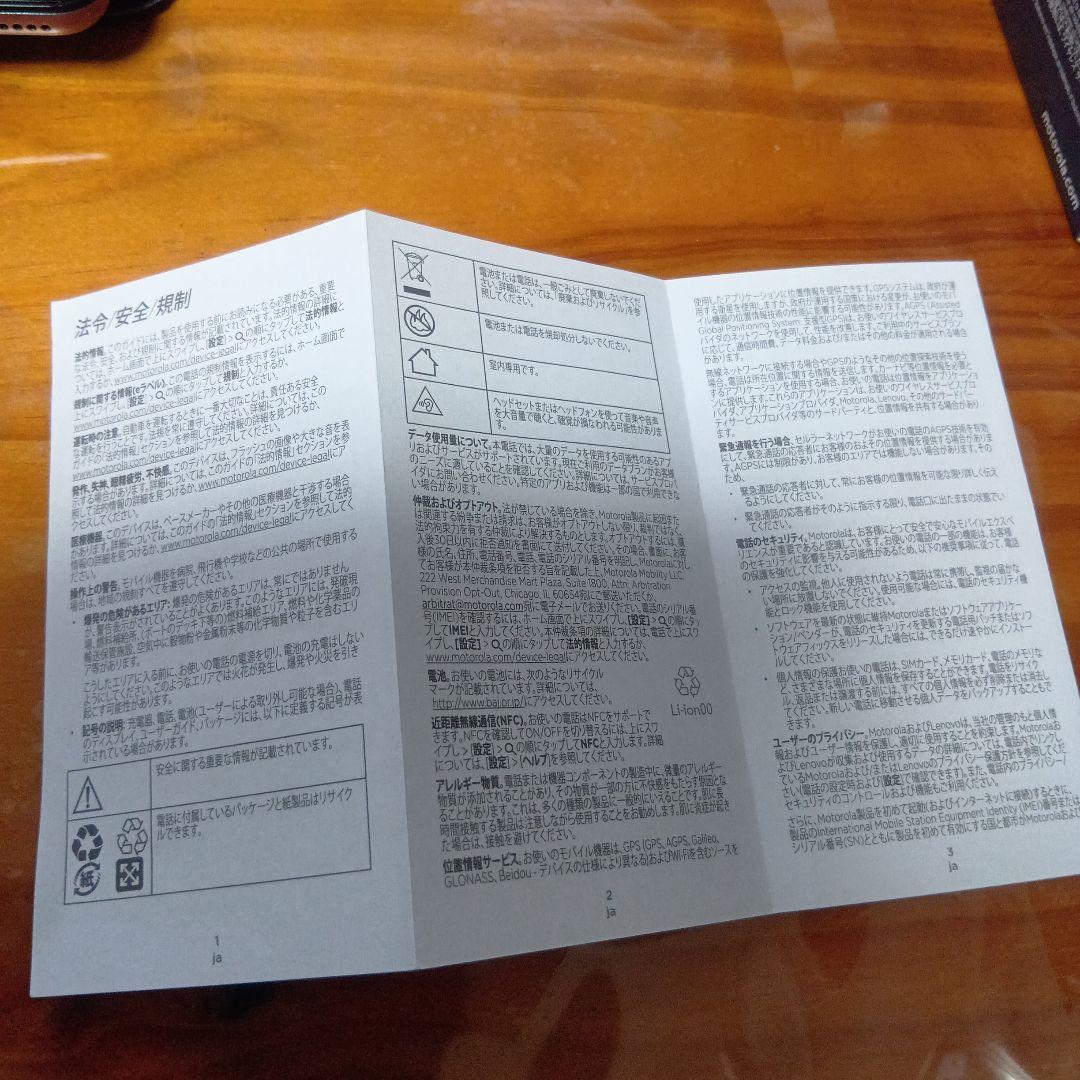 motorola.com
法令/安全/規制
法的情報。このガイドには、製品を使用する前にお読みになる必要がある、重要
な法令、安全、および規制に関する情報が記載されています。法的情報の詳細に
ついては、ホーム画面で上にスワイプし、[設定] > の順にタップして法的情報と
入力するか、www.motorola.com/device-legalにアクセスしてください。
規制に関する情報(eラベル)。この電話の規制情報を表示するには、ホーム画面で
上にスワイプし、[設定] > の順にタップして規制と入力するか、
www.motorola.com/device-legalにアクセスしてください。
運転時の注意。自動車を運転するときに一番大切なことは、責任ある安全
な運転をすることです。法規を常に遵守してください。詳細については、この
ガイドの「法的情報」セクションを参照して法的情報の詳細を見つけるか、
www.motorola.com/device-legalにアクセスしてください。
発作、失神、眼精疲労、不快感。このデバイスは、フラッシュの画像や大きな音を表
示する場合があります。詳細については、このガイドの「法的情報」セクションを参
照して法的情報の詳細を見つけるか、www.motorola.com/device-legalにア
クセスしてください。
医療機器。このデバイスは、ペースメーカーやその他の医療機器と干渉する場合
があります。詳細については、このガイドの「法的情報」セクションを参照して法的
情報の詳細を見つけるか、www.motorola.com/device-legalにアクセスしてく
ださい。
操作上の警告。モバイル機器を病院、飛行機や学校などの公共の場所で使用する
場合は、地域の規制すべてを遵守してください。
• 爆発の危険があるエリア: 爆発の危険があるエリアは、常にではありません
が、警告が示されていることがよくあります。このようなエリアには、発破現
場、燃料補給所、(ボートのデッキ下等の)燃料補給エリア、燃料や化学薬品の
輸送保管施設、空気中に穀物粉や金属粉末等の化学物質や粒子を含むエリ
ア等があります。
こうしたエリアに入る前に、お使いの電話の電源を切り、電池の充電はしない
ようにしてください。このようなエリアでは火花が発生し、爆発や火災を引き
起こす可能性があります。
• 記号の説明: 充電器、電話、電池(ユーザーによる取り外し可能な場合)、電話
のディスプレイ、ユーザーガイド、パッケージには、以下に定義する記号が表
示されている場合があります。
安全に関する重要な情報が記載されています。
電話に付属しているパッケージと紙製品はリサイク
ルできます。
紙
1
ja
電池または電話は、一般ごみとして廃棄しないでくだ
さい。詳細については、「廃棄およびリサイクル」を参
照してください。
電池または電話を焼却処分しないでください。
室内専用です。
ヘッドセットまたはヘッドフォンを使って音楽や音声
を大音量で聴くと、聴覚が損なわれる可能性がありま
す。
データ使用量について。本電話では、大量のデータを使用する可能性のあるアプ
リおよびサービスがサポートされています。現在ご利用のデータプランがお客様
のニーズに適していることを確認してください。詳細については、サービスプロバ
イダにお問い合わせください。特定のアプリおよび機能は一部の国で利用できな
い場合があります。
仲裁およびオプトアウト。法が禁じている場合を除き、Motorola製品に起因また
は関連する紛争または請求は、お客様がオプトアウトしない限り、裁判ではなく、
法的拘束力を有する仲裁により解決するものとします。オプトアウトするには、購
入後30日以内に拒否通知を書面にて送付してください。その場合、書面に、お客
様の氏名、住所、電話番号、電話、電話のシリアル番号を明記し、Motorolaに対し
てお客様が本仲裁条項を拒否する旨を記載した上、Motorola Mobility LLC
222 West Merchandise Mart Plaza, Suite 1800, Attn: Arbitration
Provision Opt-Out, Chicago, IL 60654宛にご郵送いただくか、
arbitrat@motorola.com宛に電子メールでお送りください。電話のシリアル番
号(IMEI)を確認するには、ホーム画面で上にスワイプし、[設定] > の順にタッ
プしてIMEIと入力してください。本仲裁条項の詳細については、電話で上にスワ
イプし、[設定] > の順にタップして法的情報と入力するか、
www.motorola.com/device-legalにアクセスしてください。
電池。お使いの電池には、次のようなリサイクル
マークが記載されています。詳細については、
http://www.baj.or.jp/にアクセスしてください。
Li-ion00
近距離無線通信(NFC)。お使いの電話はNFCをサポートで
きます。NFCを確認してON/OFFを切り替えるには、上にスワ
イプし > [設定] > の順にタップしてNFCと入力します。詳細
については、[設定] > [ヘルプ]を参照してください。
アレルギー物質。電話または機器コンポーネントの製造中に、微量のアレルギー
物質が添加されることがあり、その物質が一部の方に不快感をもたらす原因とな
ることがあります。これは、多くの種類の製品に一般的にいえることです。肌に長
時間接触する製品は注意しながら使用することをお勧めします。肌に炎症が起き
た場合は、接触を避けてください。
位置情報サービス。お使いのモバイル機器は、GPS (GPS, AGPS, Galileo,
GLONASS, Beidou - デバイスの仕様により異なる)およびWi-Fiを含むソースを
2
ja
使用したアプリケーションに位置情報を提供できます。GPSシステムは、政府が運
用する衛星を使用しますが、政府が運用する国策における変更が、お使いのモバ
イル機器の位置情報技術の性能に影響する可能性があります。AGPS (Assisted
Global Positioning System, 支援型GPS)は、お使いのワイヤレスサービスプロ
バイダのネットワークを使用して、性能を改善します。ご利用中のサービスプラン
に応じて、通信時間費、データ料金および/またはその他の料金が適用される場合
があります。
無線ネットワークに接続する場合やGPSのようなその他の位置探索技術を使う
場合、電話は所在位置に関する情報を送信します。カーナビ等位置情報を必要と
するアプリケーションを使用する場合、お使いの電話は位置情報をアプリケーショ
ンに提供します。これらのアプリケーションは、お使いのワイヤレスサービスプロ
バイダ、アプリケーションプロバイダ、Motorola、Lenovo、その他のサードパー
ティサービスプロバイダ等のサードパーティと、位置情報を共有する場合があり
ます。
緊急通報を行う場合、セルラーネットワークがお使いの電話のAGPS技術を有効
にして、緊急通話の応答者にお客様のおよその位置情報を提供する場合がありま
す。AGPSには制限があり、お客様のエリアでは機能しない場合があります。その
ため、
• 緊急通話の応答者に対して、常にお客様の位置情報を可能な限り詳しく伝え
るようにしてください。
• 緊急通話の応答者がそのように指示する限り、電話口に出たままの状態でい
てください。
電話のセキュリティ。Motorolaは、お客様にとって安全で安心なモバイルエクスペ
リエンスが重要であると認識しています。お使いの電話の一部の機能は、お客様
のセキュリティに影響を与える可能性があるため、以下の推奨事項に従って、電話
の保護を強化してください。
• アクセスの監視。他人に使用されないよう電話は常に携帯し、監視の届かな
い場所に放置しないでください。使用可能な場合には、電話のセキュリティ機
能とロック機能を使用してください。
• ソフトウェアを最新の状態に維持MotorolaまたはソフトウェアアプリケーС
ション/ベンダーが、電話のセキュリティを更新する電話用パッチまたはソフ
トウェアフィックスをリリースした場合には、できるだけ速やかにインストー
ルしてください。
• 個人情報の保護お使いの電話は、SIMカード、メモリカード、電話のメモリな
ど、さまざまな場所に個人情報を保存することができます。電話をリサイク
ル、返品または譲渡する前には、すべての個人情報を必ず削除または消去し
てください。新しい電話に移動する個人データをバックアップすることもで
きます。
ユーザーのプライバシー。MotorolaおよびLenovoは、当社の管理のもと個人情
報およびユーザー情報を保護し、適切に使用することを約束します。Motorolaお
よびLenovoが収集および使用するデータの詳細については、電話でリンクし
ているMotorolaおよび/またはLenovoのプライバシー保護方針を参照してくだ
さい(電話の設定時および[設定]で確認できます)。また、電話内のプライバシー/
セキュリティのコントロールおよび機能もご利用ください。
さらに、Motorola製品を初めて起動(およびインターネットに接続)するときに、
製品のInternational Mobile Station Equipment Identity (IMEI)番号または
シリアル番号(SN)とともに製品を初めて有効にする国と都市がMotorolaおよ
3
ja